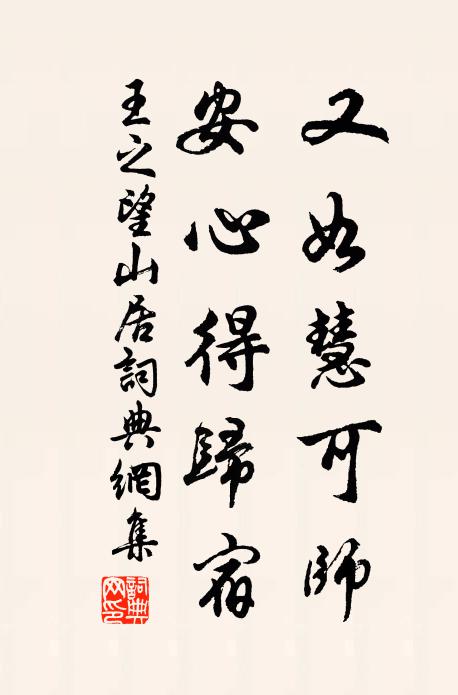 又如慧可師
安心得歸宿
王之望山居詞典網集
詞典網印